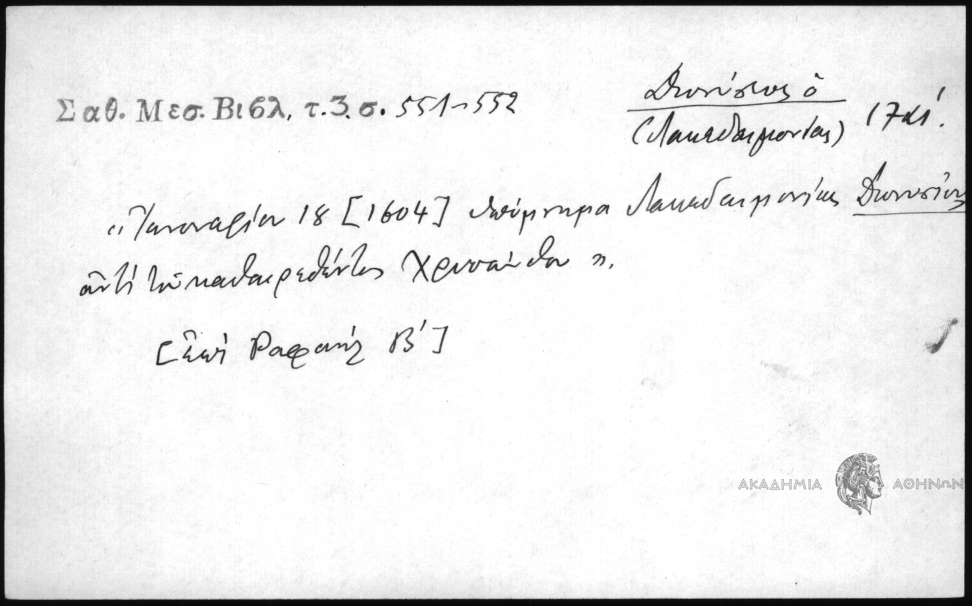 Σαθ. Μεσ. Βιβλ. τ. 3. σ. 551-552
Διονύσιος ὁ
(Λακεδαιμονίας)
«Ἰανουαρίου 18 [1604] ὑπόμνημα Λακεδαιμονίας Διονυσίου
ἀντὶ τοῦ καθαιρεθέντος Χρυσάνθου».
[ἐπὶ Ραφαὴλ Β′]
ΑΚΑΔΗΜΙΑ ΑΘΗΝΩΝ